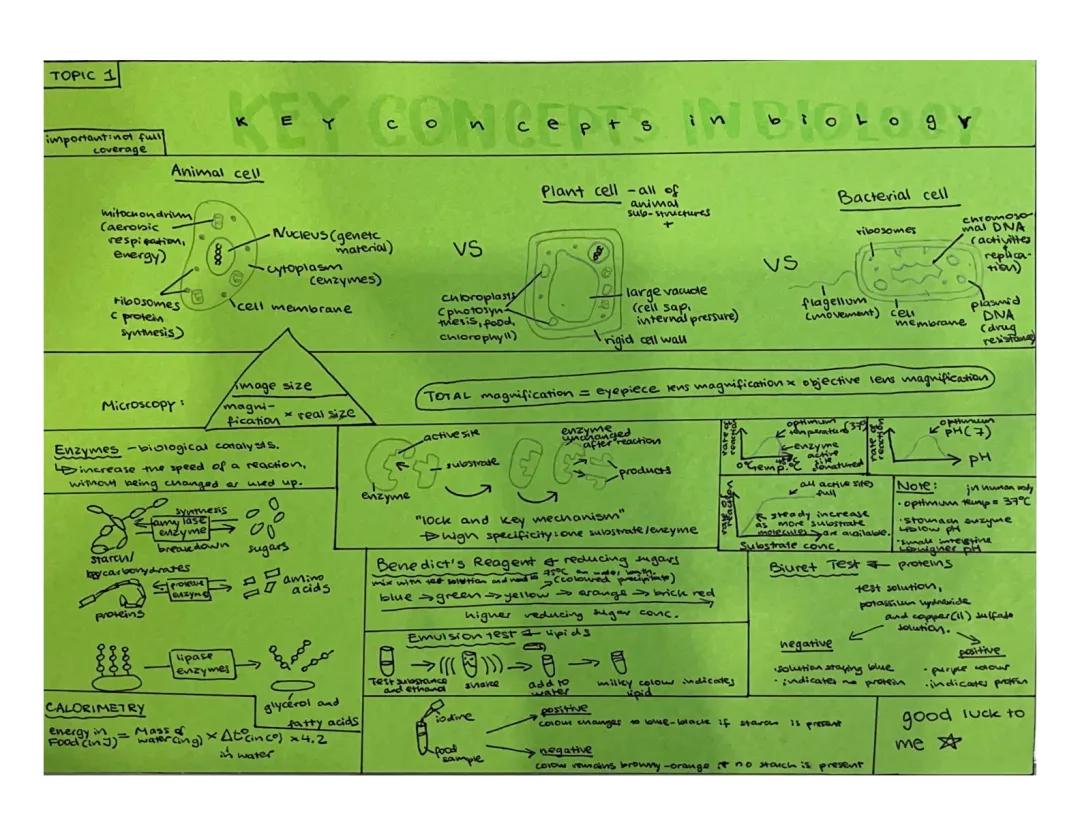 TOPIC 1
KEY concepts in bioLogy
important: not full
coverage
Animal cell
mitochondrium
(aerobic
respiration,
energy)
Nucleus (genetic
material)
cytoplasm
(enzymes)
cell membrane
ribosomes
(protein
synthesis)
VS
Plant cell - all of
animal
sub-structures
+
chloroplasts
(photosyn-
thesis, food,
chlorophyll)
large vacuole
(cell sap,
internal pressure)
rigid cell wall
VS
Bacterial cell
ribosomes
chromoso-
mal DNA
(activities
replica-
tion)
flagellum
(movement)
cell
membrane
plasmid
DNA
(drug
resistance)
Microscopy:
image size
magni-
fication × real size
TOTAL magnification = eyepiece lens magnification × objective lens magnification
Enzymes - biological catalysts.
↳ increase the speed of a reaction,
without being changed or used up.
synthesis
amylase
enzyme
breakdown
starch/
carbohydrates
sugars
protease
enzyme
proteins
amino
acids
lipase
enzymes
glycerol and
fatty acids
active site
substrate
enzyme
enzyme
unchanged
after reaction
products
"lock and key mechanism"
→ high specificity: one substrate/enzyme
rate of
reaction
optimum
temperature (37°)
enzyme
active
site
denatured
0° temp. °C
rate of
reaction
optimum
pH (7)
pH
rate of
reaction
all active sites
full
steady increase
as more substrate
molecules are available.
Substrate conc.
Note: in human body
· optimum temp = 37°C
· stomach enzyme
↳ low pH
· small intestine
↳ higher pH
Benedict's Reagent ← reducing sugars
mix with test solution and
(coloured precipitate)
blue → green → yellow → orange → brick red
higher reducing sugar conc.
Emulsion test ← lipids
Test substance
and ethanol
shake
add to
water
milky colour indicates
lipid
Biuret Test ← proteins
test solution,
potassium hydroxide
and copper(II) sulfate
solution.
negative
· solution staying blue
· indicates no protein
positive
· purple colour
· indicates protein
CALORIMETRY
energy in
Food (in J) = Mass of
water (in g) × Δt° (in C°) × 4.2
in water
iodine
food
sample
positive
colour changes to blue-black if starch is present
negative
colour remains browny-orange if no starch is present
good luck to
me ☆